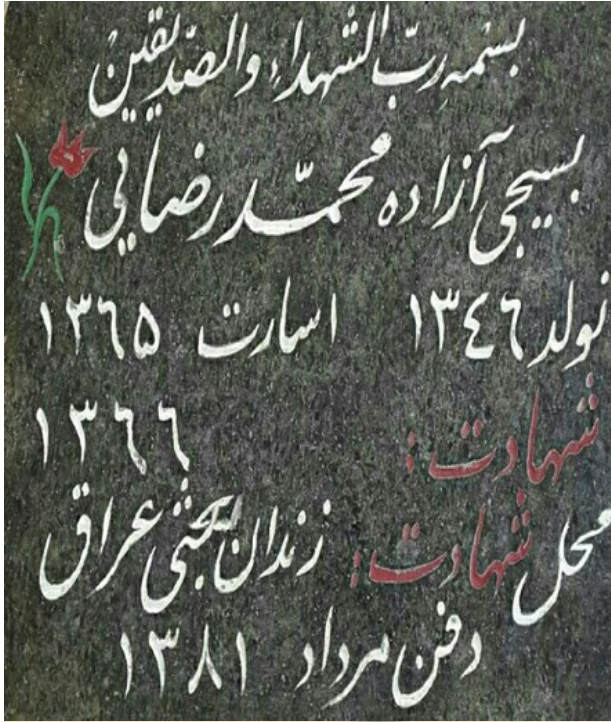 بسمه ربّ الشهداء والصّدیقین
بسیجی آزاده محمّد رضایی
تولد ۱۳٤٦ اسارت ۱۳٦۵
شهادت: ۱۳٦٦
محل شهادت: زندان بعثی عراق
دفن مرداد ۱۳۸۱